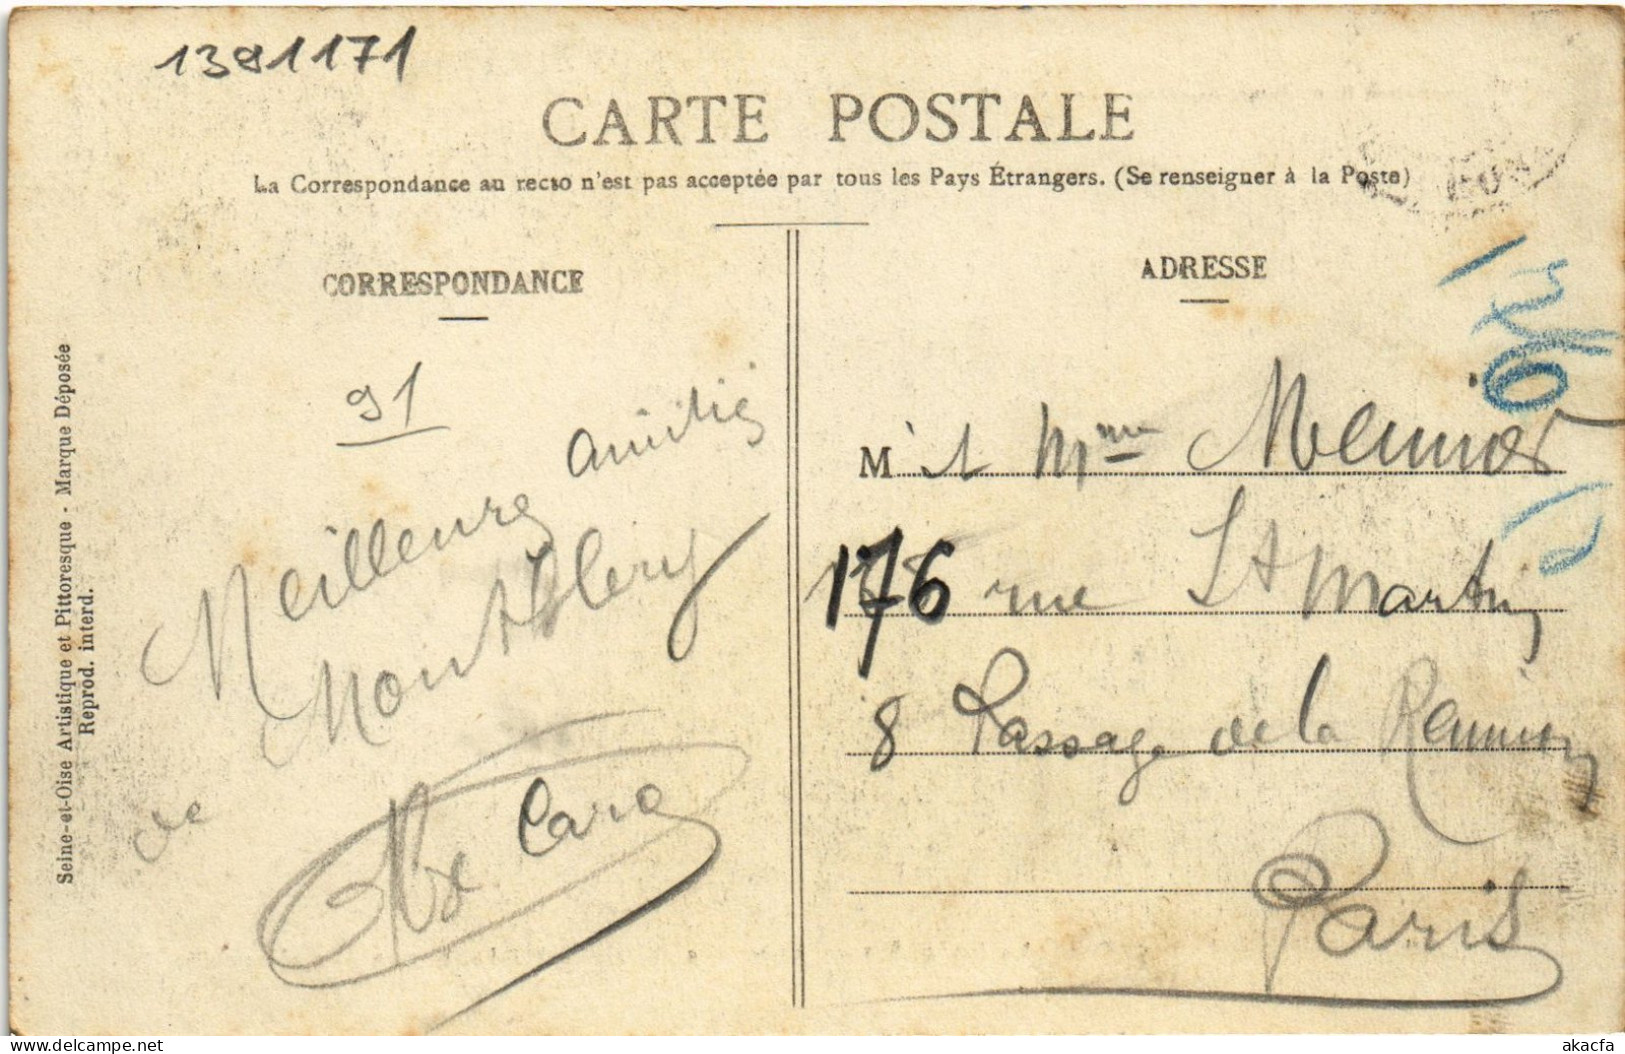 1391171
CARTE POSTALE
La Correspondance au recto n'est pas acceptée par tous les Pays Étrangers. (Se renseigner à la Poste)
CORRESPONDANCE
91
Meilleures amitiés
de Montlhery
Seine-et-Oise Artistique et Pittoresque - Marque Déposée
Reprod. interd.
ADRESSE
M et Mme Meunier
176 rue St Martin
8 Passage de la Reunion
Paris
akacfa